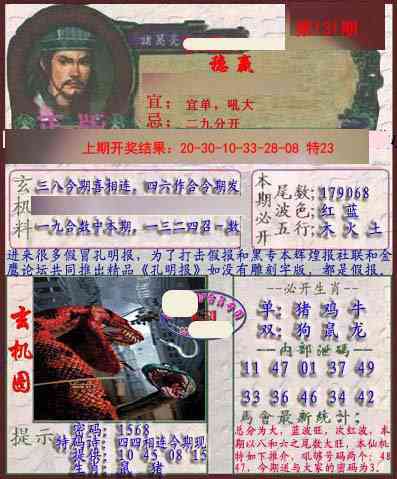 諸葛亮
第131期
稳赢
宜：宜单，吼大
忌：二九分开
上期开奖结果：20-30-10-33-28-08 特23
玄机料
三八今期喜相连，四六作合今期发
一九合数中本期，一三二四召一数
本期必开
尾数:179068
波色:红 蓝
五行:木 火 土
进来很多假冒孔明报，为了打击假报和黑专本辉煌报社联和金
鹰论坛共同推出精品《孔明报》如没有雕刻字版，都是假报。
玄机图
--必开生肖--
单：猪 鸡 牛
双：狗 鼠 龙
--内部泄码--
11 47 01 37 49
33 36 46 34 42
馬會最新統計：
总分为大，蓝波旺，次红波，本
期以八和六之尾数大旺，本仙机
特如下推介，吼够号码两个：48
47，今期送与大家的密码为3。
提示
密码：1568
特码诗：四四相连今期现
提供：10 45 08 15
生肖：鼠 猪